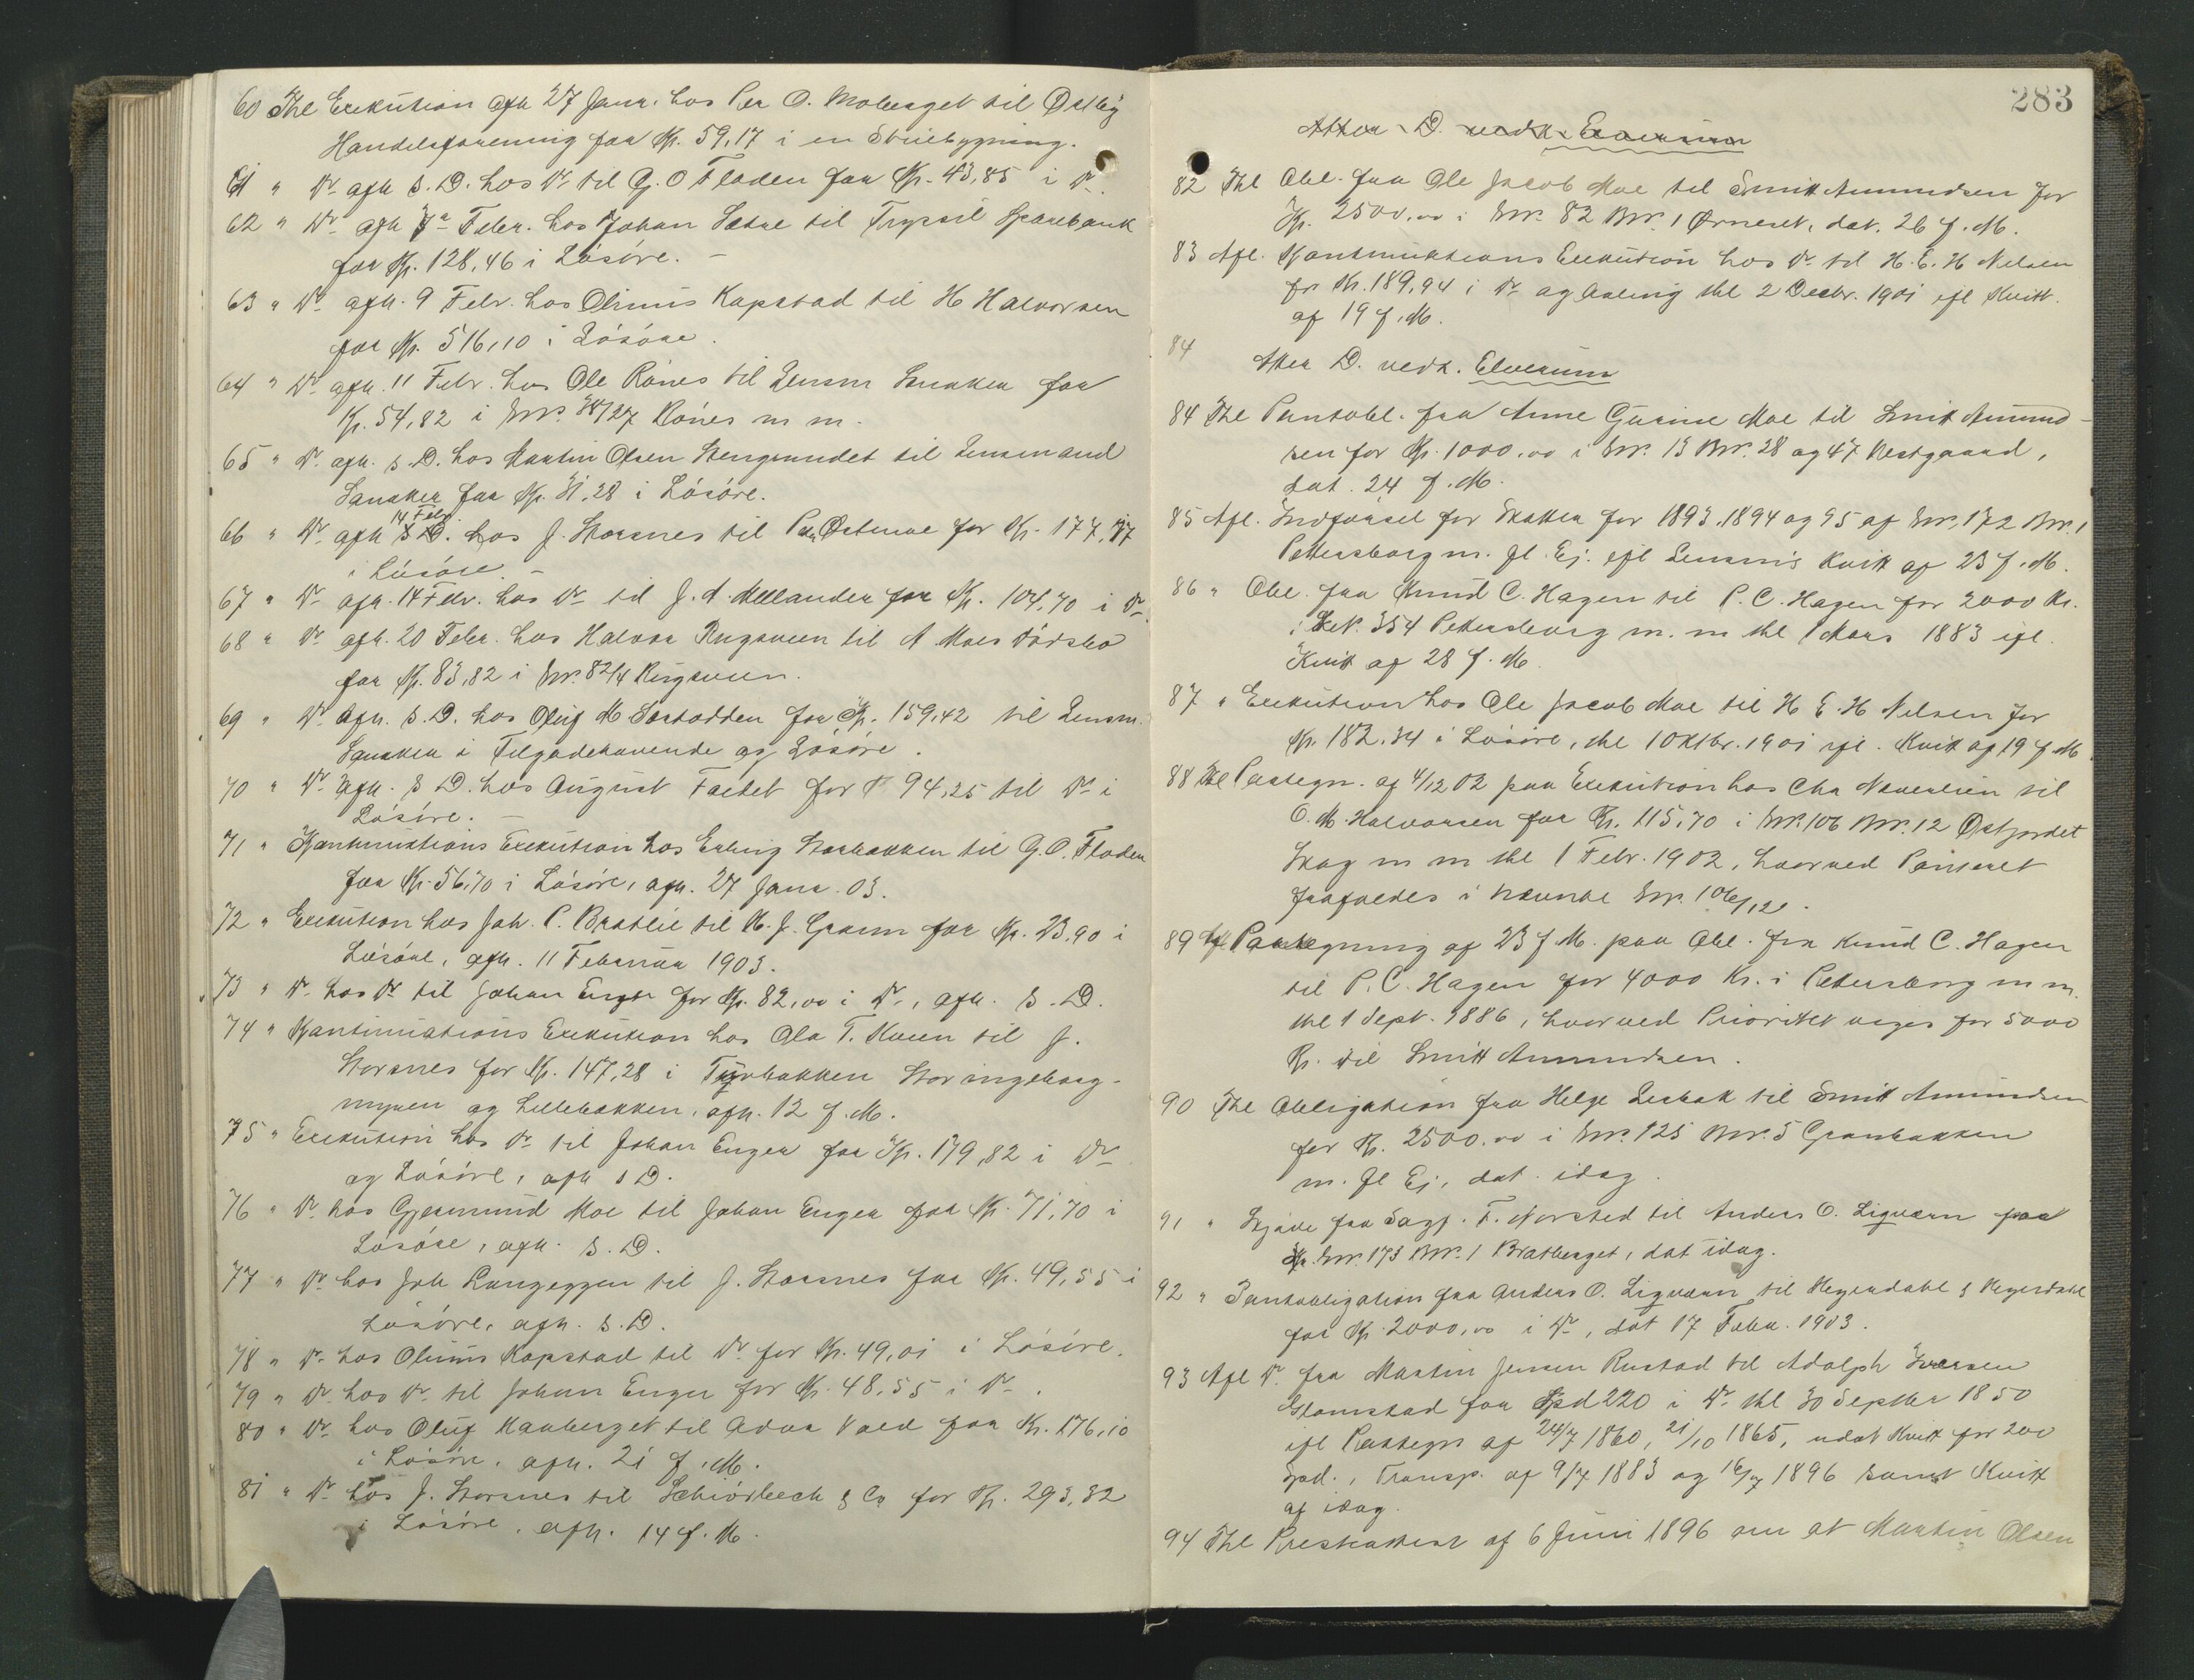 60 Thl Exekution afh 27 Janr. hos Per O. Moberget til Østby
Handelsforening for Kr. 59,17 i en Stuebygning.
61 " Do afh s. D. hos Do til G. O Floden for Kr. 43,85 i Do.
62 " Do afh 7de Febr. hos Johan Sætre til Trysil Sparebank
for Kr. 128,46 i Løsøre. –
63 " Do afh. 9 Febr. hos Olinus Kapstad til H Halvorsen
for Kr. 516,10 i Løsøre.
64 " Do afh. 11 Febr. hos Ole Rönes til Lensm for
Kr. 54,82 i Gno 34/27 Rönes m m.
65 " Do afh. s. D. hos Martin Olsen Stengrundet til Lensmand
for Kr. 31,28 i Løsøre.
14 Febr
66 " Do afh s D. hos J. Storsnes til Per Østmoe for Kr. 177,37
i Løsøre. –
67 " Do afh. 14 Febr. hos Do til J. A. Mellander for Kr. 104,70 i Do
68 " Do afh. 20 Febr. hos Halvor Rugsveen til A Moes Dödsbo
for Kr. 83,82 i Gno. 82/4 Rugsveen.
69 " Do afh. s. D. hos Oluf M for Kr. 159,42 til Lensm.
i Tilgodehavende og Løsøre.
70 " Do afh. s D. hos August Faldet for K 94,25 til Do i
Løsøre. –
71 " Kontinuations Exekution hos Erling Storbakken til G. O. Floden
for Kr. 56,70 i Løsøre, afh. 27 Janr. 03.
72 " Exekution hos Joh. P. Bratlie til K. J. Grann for Kr. 23,90 i
Løsøre, afh. 11 Februar 1903.
73 " Do hos Do til Johan Enger for Kr. 82,00 i Do, afh. s. D.
74 " Kontinuations Exekution hos Ola T. Kveen til J.
Storsnes for Kr. 147,28 i Tyrbakken Storingeborg-
myren og Lillebakken, afh. 12 f. M.
75 " Exekution hos Do til Johan Enger for Kr. 179,82 i Do
og Løsøre, afh s D.
76 " Do hos Gjermund Moe til Johan Enger for Kr. 71,70 i
Løsøre, afh. s. D.
77 " Do hos Joh Langeggen til J. Storsnes for Kr. 49,55 i
Løsøre, afh. s. D.
78 " Do hos Olinus Kapstad til Do for Kr. 49,01 i Løsøre.
79 " Do hos Do til Johan Enger for Kr. 48,55 i Do.
80 " Do hos Oluf til for Kr. 176,10
i Løsøre, afh. 21 f. M.
81 " Do hos J. Storsnes til Schiörbech & Co for Kr. 293,32
i Løsøre, afh. 14 f. M.
283
Atter D. vedk. Elverum
82 Thl Obl. fra Ole Jacob Moe til Smitt Amundsen for
Kr. 2500,00 i Gno. 82 Bno. 1 Ørneset, dat. 26 f. M.
83 Afl. Kontinuations Exekution hos Do til H. E. H Nilsen
for Kr. 189,94 i Do og thl 2 Decbr. 1901 ifl Kvitt.
af 19 f. M.
84
Atter D. vedk. Elverum
84 Thl Pantobl. fra Anne Gurine Moe til Smitt Amund-
sen for Kr. 1000,00 i Gno. 13 Bno. 28 og 47 Vestgaard,
dat. 24 f. M.
85 Afl. Indførsel for Skatter for 1893, 1894 og 95 af Gno. 172 Bno. 1
Pettersborg m. fl. Ej. ifl Lensm's Kvitt af 23 f. M.
86 " Obl. fra Knud C. Hagen til P. C. Hagen for 2000 Kr.
i LNo. 354 Pettersborg m. m thl 1 Mars 1883 ifl.
Kvitt af 28 f. M.
87 " Exekution hos Ole Jacob Moe til H E. H Nilsen for
Kr. 182,34 i Løsøre, thl 1 Oktbr. 1901 ifl. Kvitt af 19 f. M.
88 Thl Paategn. af 4/12 02 paa Exekution hos Chr Naverlien til
O. M. Halvorsen for Kr. 115,70 i Gno. 106 Bno. 12 Østjordet
Skog m m thl 1 Febr. 1902, hvorved Panteret
frafaldes i nævnte Gno. 106/12.
89 Afl Paategning af 23 f. M. paa Obl. fra Knud C. Hagen
til P. C. Hagen for 4000 Kr. i Petersborg m m.
thl 1 Sept. 1886, hvorved Prioritet viges for 5000
Kr. til Smitt Amundsen.
90 Thl Obligation fra Helge Lerbak til Smitt Amundsen
for Kr. 2500,00 i Gno. 125 Bno. 5 Granbakken
m. fl Ej, dat. idag.
91 " Skjøde fra Sagf. F. Norsted til Anders O. Ligvarn paa
Gno. 173 Bno. 1 Bratberget, dat idag.
92 " Pantobligation fra Anders O. Ligvarn til Heyerdahl & Heyerdahl
for Kr 2000,00 i Do, dat 17 Febr. 1903.
93 Afl Do fra Martin Jensen Rustad til Adolph Iversen
Glomstad for Spd 220 i Do thl 30 Septbr 1850
ifl Paategn af 24/7 1860, 21/10 1865, udat Kvitt for 200
Spd., Transp. af 9/7 1883 og 16/7 1896 samt Kvitt
af idag.
94 Thl Presteattest af 6 Juni 1896 om at Martin Olsen